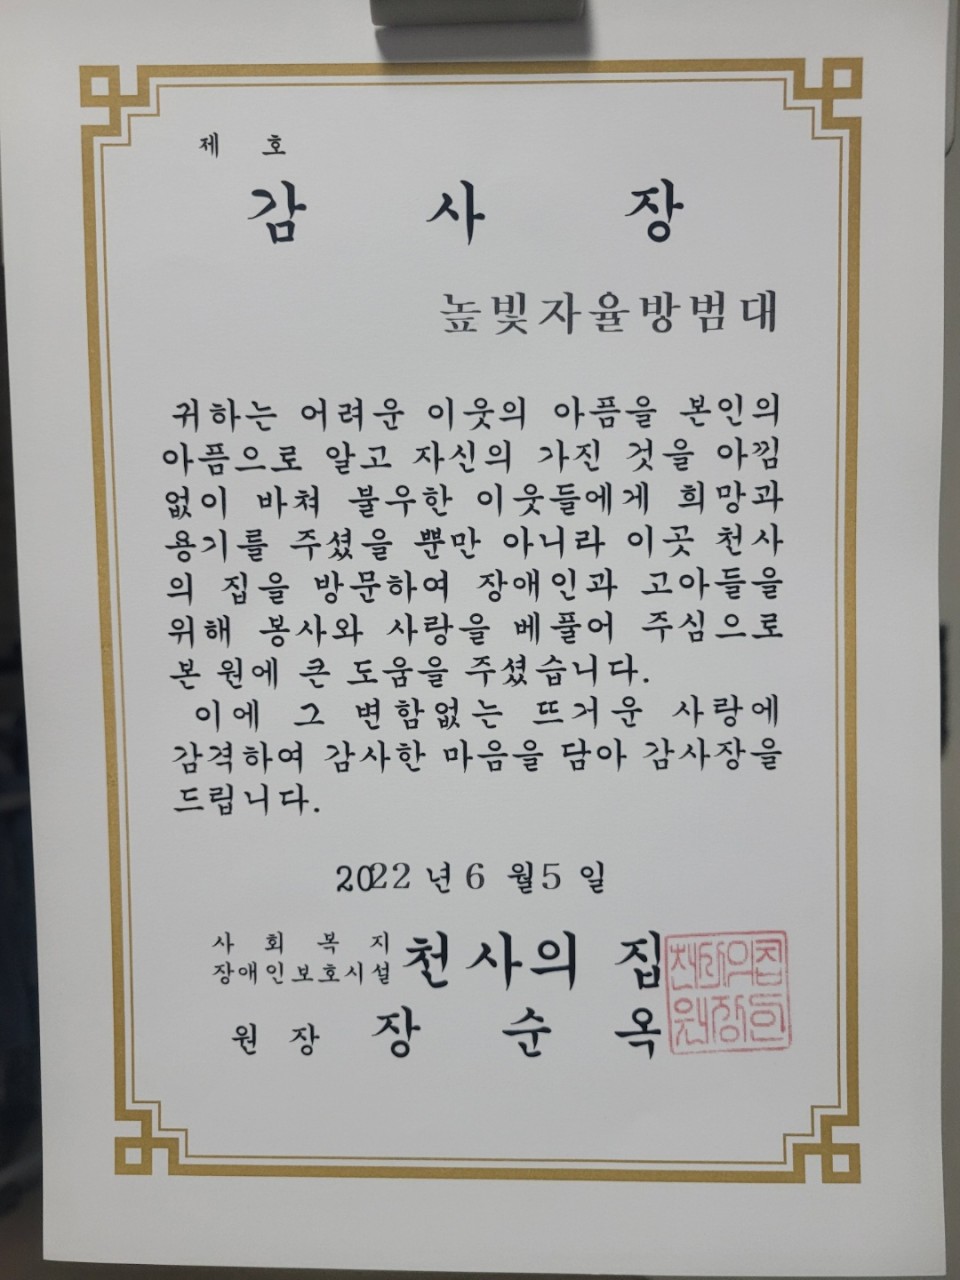 제 호
감 사 장
높빛자율방범대
귀하는 어려운 이웃의 아픔을 본인의
아픔으로 알고 자신의 가진 것을 아낌
없이 바쳐 불우한 이웃들에게 희망과
용기를 주셨을 뿐만 아니라 이곳 천사
의 집을 방문하여 장애인과 고아들을
위해 봉사와 사랑을 베풀어 주심으로
본 원에 큰 도움을 주셨습니다.
이에 그 변함없는 뜨거운 사랑에
감격하여 감사한 마음을 담아 감사장을
드립니다.
2022 년 6 월 5 일
사 회 복 지
장애인보호시설 천사의 집
원 장 장 순 옥
천사의집
원장인